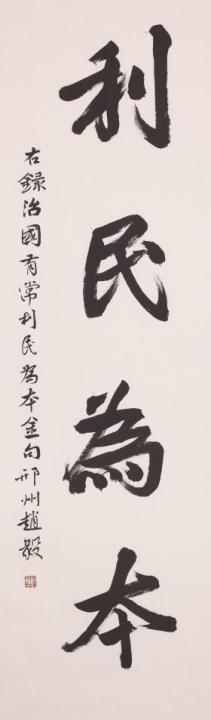 利民為本
右錄治國有常利民為本金句邢州趙毅